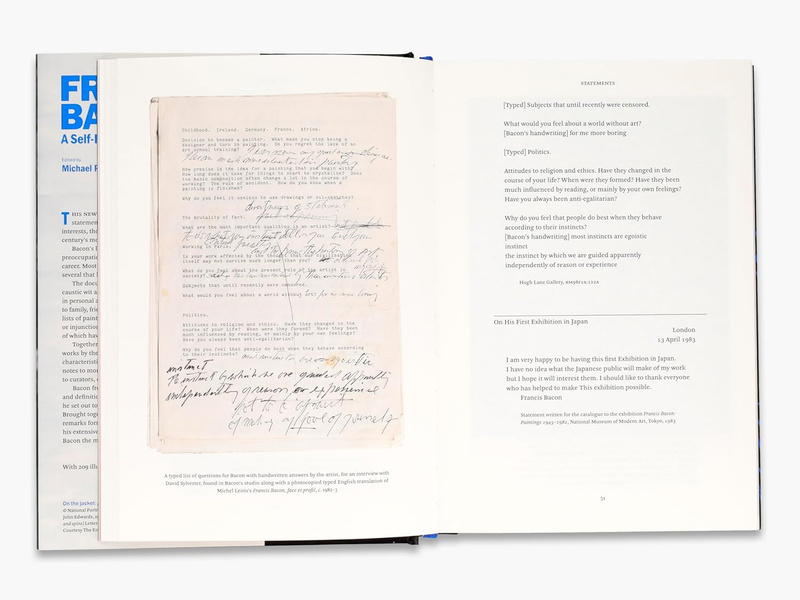 FR
BA
A Self-
Edited by
Michael P
THIS NEW
statem
interests, th
century's mo
Bacon's l
preoccupatio
career. Most
several that h
The docu
caustic wit a
in personal a
to family, frie
lists of paint
or injunction
of which hav
Together
works by the
characteristi
notes to mor
to curators,
Bacon fr
and definitio
he set out to
Brought toge
remarks form
his extensive
Bacon the m
With 209 illu
On the jacket:
© National Portr
John Edwards, s
and spine) Letter
Courtesy The Es
Childhood. Ireland. Germany. France. Africa.
Decision to become a painter. What made you stop being a
designer and turn to painting. Do you regret the lack of an
art school training?
How precise is the idea for a painting that you begin with?
How long does it take for things to start to crystallize? Does
the basic composition often change a lot in the course of
working? The role of accident. How do you know when a
painting is finished?
Why do you feel it useless to use drawings or oil-sketches?
The Brutality of fact.
What are the most important qualities in an artist?
Working in Paris.
Is your work affected by the thought that our civilisation
itself may not survive much longer than you?
What do you feel about the present role of the artist in
society?
Subjects that until recently were censored.
What would you feel about a world without art? for me more boring
Politics.
Attitudes to religion and ethics. Have they changed in the
course of your life? When were they formed? Have they been
much influenced by reading, or mainly by your own feelings?
Have you always been anti-egalitarian?
Why do you feel that people do best when they behave according
to their instincts? most instincts are egoistic
instinct
the instinct by which we are guided apparently
independently of reason or experience
not to be afraid
of making a fool of yourself
A typed list of questions for Bacon with handwritten answers by the artist, for an interview with
David Sylvester, found in Bacon's studio along with a photocopied typed English translation of
Michel Leiris's Francis Bacon, face et profil, c. 1982–3
STATEMENTS
[Typed] Subjects that until recently were censored.
What would you feel about a world without art?
[Bacon's handwriting] for me more boring
[Typed] Politics.
Attitudes to religion and ethics. Have they changed in the
course of your life? When were they formed? Have they been
much influenced by reading, or mainly by your own feelings?
Have you always been anti-egalitarian?
Why do you feel that people do best when they behave
according to their instincts?
[Bacon's handwriting] most instincts are egoistic
instinct
the instinct by which we are guided apparently
independently of reason or experience
Hugh Lane Gallery, RM98F1A:122A
On His First Exhibition in Japan
London
13 April 1983
I am very happy to be having this first Exhibition in Japan.
I have no idea what the Japanese public will make of my work
but I hope it will interest them. I should like to thank everyone
who has helped to make This exhibition possible.
Francis Bacon
Statement written for the catalogue to the exhibition Francis Bacon:
Paintings 1945–1982, National Museum of Modern Art, Tokyo, 1983
51